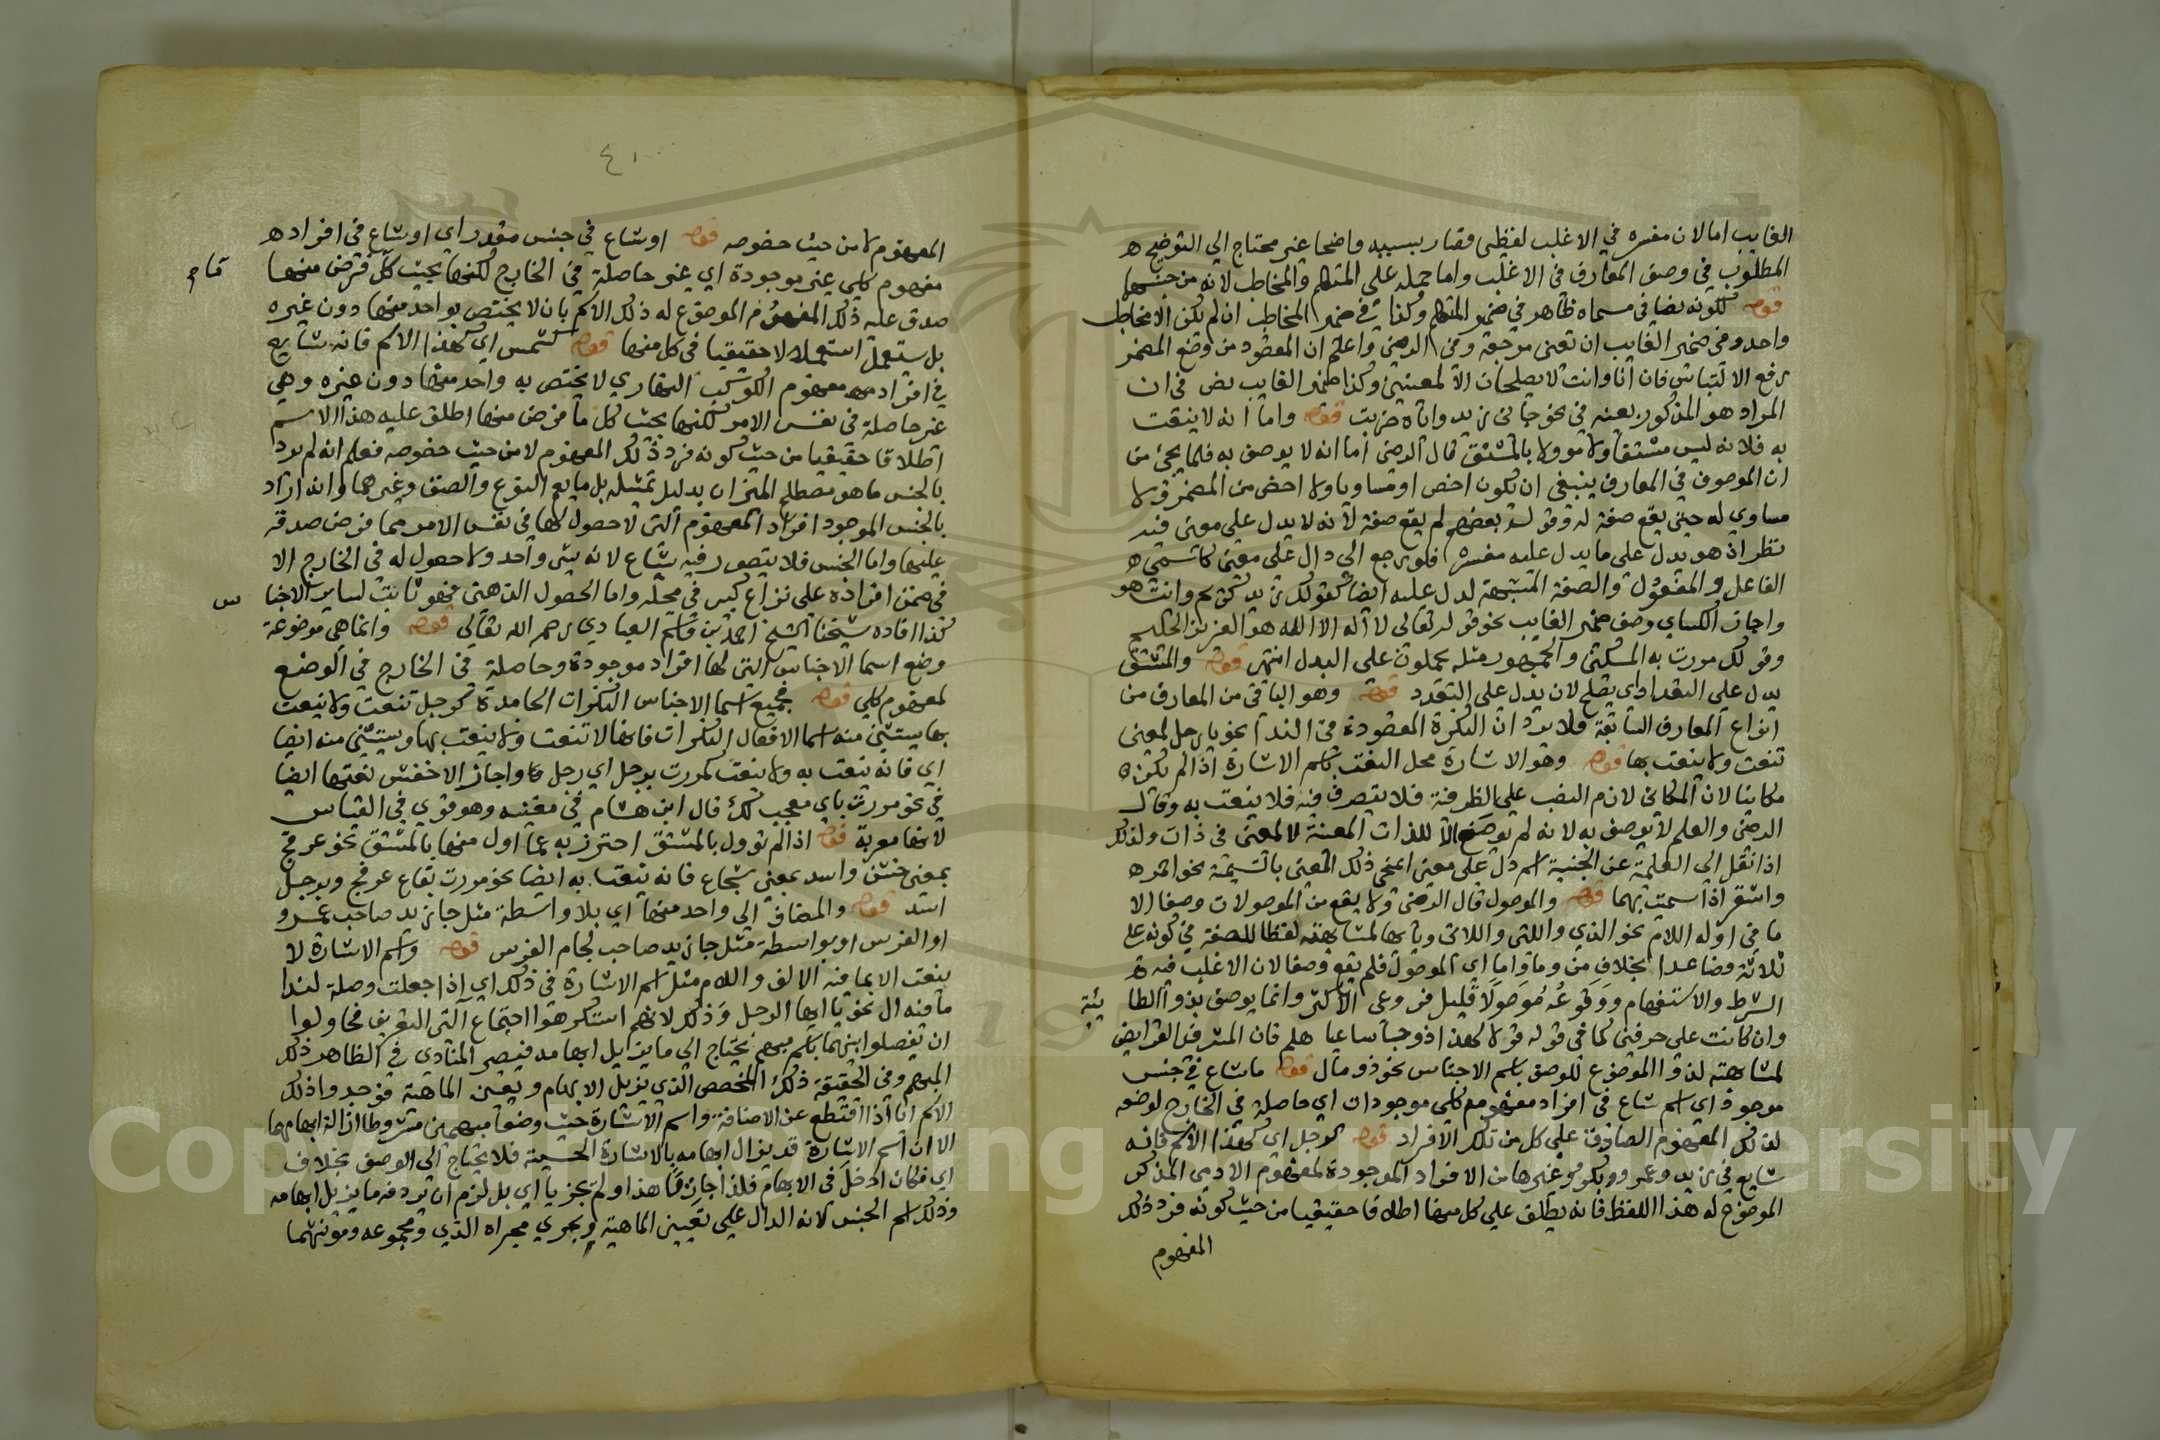 الغايب اما لان مفسره في الاغلب لفظي فصار بسببه واضحا غير محتاج الي التوضيح
المطلوب في وصف المعارف في الاغلب واما حمله علي المتكلم والمخاطب لانه من جنسهما
قوله لكونه نصا في مسماه ظاهر في ضمير المتكلم وكذا في ضمير المخاطب ان لم يكن الا مخاطب
واحد وفي ضمير الغايب ان تعين مرجعه وفي الرضي واعلم ان المقصود من وضع المضمر
رفع الالتباس فان انا وانت لا يصلحان الا لمعينين وكذا ضمير الغايب نص في ان
المراد هو المذكور بعينه في نحو جاني زيد واياه ضربت قوله واما انه لا ينعت
به فلانه ليس مشتقا ولا مووولا بالمشتق قال الرضي اما انه لا يوصف به فلما يجئ من
ان الموصوف في المعارف ينبغي ان يكون اخص او مساويا ولا اخص من المضمر ولا
مساوي له حتي يقع صفة له وقول بعضهم لم يقع صفة لانه لا يدل علي معني فيه
نظر اذ هو يدل علي ما يدل عليه مفسره فلو رجع الي دال علي معني كاسمي
الفاعل والمفعول والصفة المشبهة لدل عليه ايضا كقولك زيد كريم وانت هو
واجاز الكساي وصف ضمير الغايب نحو قوله تعالي لا اله الا الله هو العزيز الحكيم
وقولك مررت به المسكين والجمهور مثله يحملون علي البدل انتهي قوله والمشتق
يدل علي التعدد اي يصلح لان يدل علي التعدد قوله وهو الباقي من المعارف من
انواع المعارف السابقة فلا يرد ان النكرة المقصودة في الندا نحو يا رجل لمعين
تنعت ولا ينعت بها قوله وهو الاشارة محل النعت باسم الاشارة اذا لم يكن
مكانيا لان المكاني لازم النصب علي الظرفية فلا يتصرف فيه فلا ينعت به وقال
الرضي والعلم لا يوصف به لانه لم يوضع الا للذات المعينة لا لمعني في ذات ولذلك
اذا نقل الي العلمية عن الجنسية اسم دل علي معني امحي ذلك المعني بالتسمية نحو احمر
واشقر اذا سميت بهما قوله والموصول قال الرضي ولا يقع من الموصولات وصفا الا
ما في اوله اللام نحو الذي والتي واللاتي وبابها لمشابهته لفظا للصفة في كونه علي
ثلاثة فصاعدا بخلاف من وما واما اي الموصول فلم يقع وصفا لان الاغلب فيه
الشرط والاستفهام ووقوعه موصولا قليل فروعي الاكثر وانما يوصف بذو الطا
ئية
وان كانت علي حرفين كما في قوله قولا لهذا ذو جا ساعيا هلم فان المشرفي الفرايض
لمشابهته لذو الموضوع للوصف باسم الاجناس نحو ذو مال قوله ما شاع في جنس
موجود اي اسم شاع في افراد مفهوم كلي موجودات اي حاصلة في الخارج لوضعه
لذلك المفهوم الصادق علي كل من تلك الافراد قوله كرجل اي كهذا الاسم فانه
شايع في زيد وعمرو وبكر وغيرها من الافراد الموجودة لمفهوم الادمي المذكر
الموضوع له هذا اللفظ فانه يطلق علي كل منها اطلاقا حقيقيا من حيث كونه فرد ذلك
المفهوم
المفهوم لا من حيث خصوصه قوله او شاع في جنس مقدر اي او شاع في افراد
مفهوم كلي غير موجودة اي غير حاصلة في الخارج لكنها بحيث كل فرض منها
صدق عليه ذلك المفهوم الموضوع له ذلك الاسم بان لا يختص بواحد منها دون غيره
بل يستعمل استعمالا حقيقيا في كل منها قوله كشمس اي كهذا الاسم فانه شايع
في افراد مفهوم الكوكب النهاري لا يختص به واحد منها دون غيره وهي
غير حاصلة في نفس الامر لكنها بحيث كل ما فرض منها اطلق عليه هذا الاسم
اطلاقا حقيقيا من حيث كونه فرد ذلك المفهوم لا من حيث خصوصه فعلم انه لم يرد
بالجنس ما هو مصطلح الميزان بدليل تمثيله بل ما يعم النوع والصنف وغيرهما وانه اراد
بالجنس الموجود افراد المفهوم التي لا حصول لها في نفس الامر مما فرض صدقه
عليها واما الجنس فلا يتصور فيه شياع لانه شي واحد ولا حصول له في الخارج الا
في ضمن افراده علي نزاع كبير في محله واما الحصول الذهني فهو ثابت لساير الاجنا
س
كذا افاده شيخنا الشيخ احمد بن قاسم العبادي رحمه الله تعالي قوله وانما هي موضوعة
وضع اسما الاجناس التي لها افراد موجودة وحاصلة في الخارج في الوضع
لمفهوم كلي قوله فجميع اسما الاجناس النكرات الجامدة كرجل تنعت ولا ينعت
بها يستثني منه اسما الافعال النكرات فانها لا تنعت ولا ينعت بها ويستثني منه ايضا
اي فانه ينعت به ولا ينعت كمررت برجل اي رجل واجاز الاخفش نعتها ايضا
في نحو مررت باي معجب لك قال ابن هشام في مغنيه وهو قوي في القياس
لانها معربة قوله اذا لم تؤول بالمشتق احترز به عما اول منها بالمشتق نحو عرفج
بمعني خشن واسد بمعني شجاع فانه ينعت به ايضا نحو مررت بقاع عرفج وبرجل
اسد قوله والمضاف الي واحد منها اي بلا واسطة مثل جا زيد صاحب عمرو
او الفرس او بواسطة مثل جا زيد صاحب لجام الفرس قوله واسم الاشارة لا
ينعت الا بما فيه الالف واللام مثل اسم الاشارة في ذلك اي اذا جعلت وصلة لندا
ما فيه ال نحو يا ايها الرجل وذلك لانهم استكرهوا اجتماع التي التعريف فحاولوا
ان يفصلوا بينهما باسم مبهم يحتاج الي ما يزيل ابهامه فيصير المنادي في الظاهر ذلك
المبهم وفي الحقيقة ذلك المخصص الذي يزيل الابهام ويعين الماهية فوجدوا ذلك
الاسم ايا اذا اقتطع عن الاضافة واسم الاشارة حيث وضعا مبهمين مشروطا ازالة ابهامهما
الا ان اسم الاشارة قد يزال ابهامه بالاشارة الحسية فلا يحتاج الي الوصف بخلاف
اي فكان ادخل في الابهام فلذا جاز يا هذا ولم يجز يا اي بل لزم ان يردفه ما يزيل ابهامه
وذلك اسم الجنس لانه الدال علي تعيين الماهية ويجري مجراه الذي ومجموعه ومونثهما